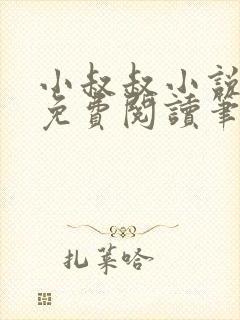 小叔叔小說
免費閱讀筆
扎菜哈